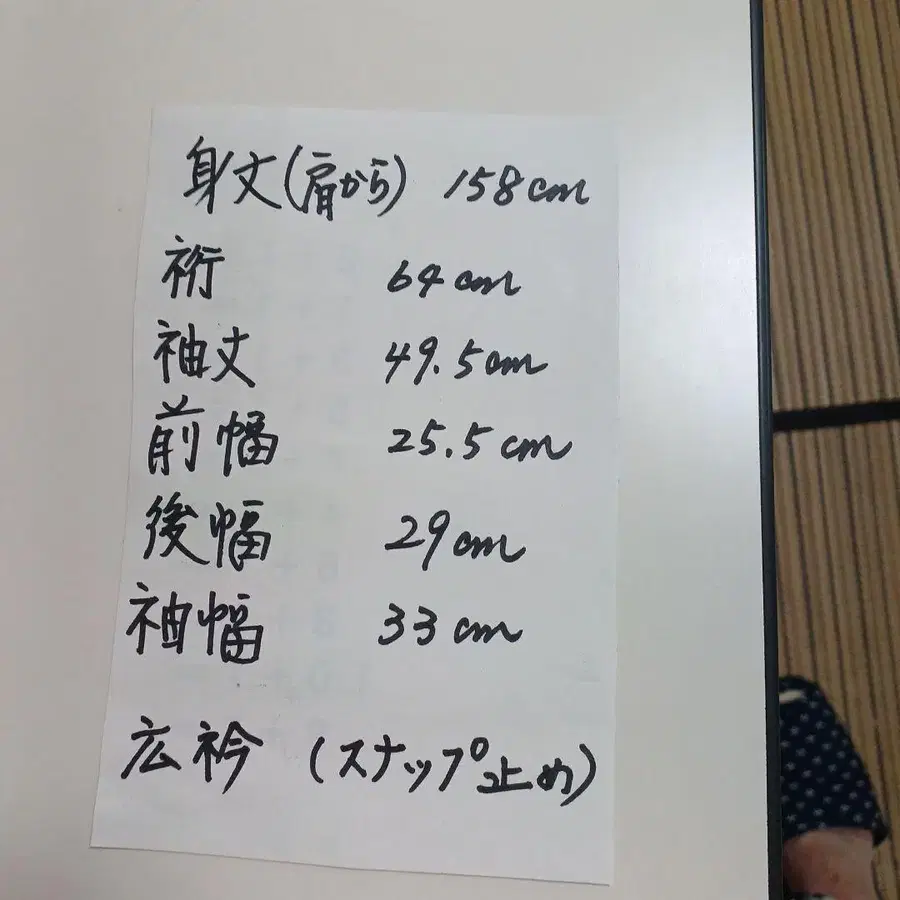 身丈(肩から) 158cm
裄 64cm
袖丈 49.5cm
前幅 25.5cm
後幅 29cm
袖幅 33cm
広衿 (スナップ止め)